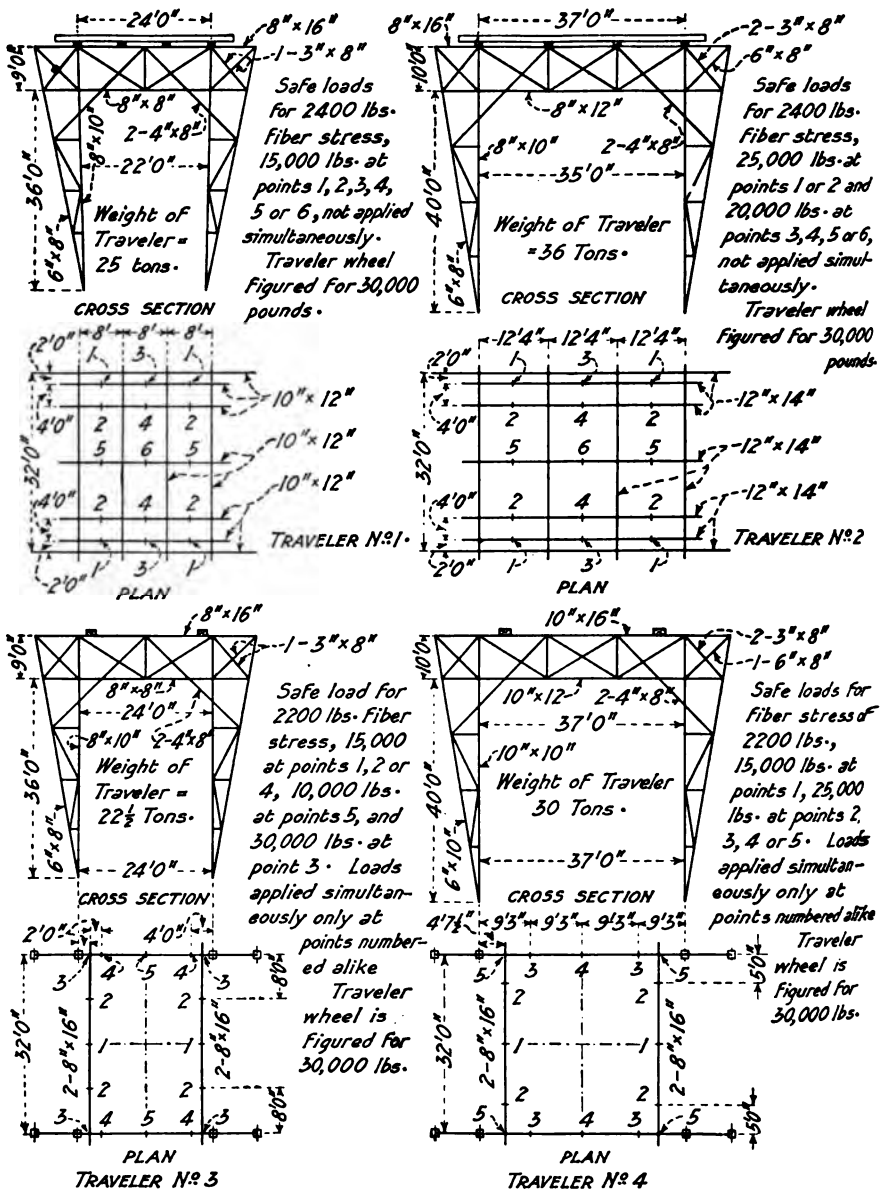 24'0"
8"×16"
1-3"×8"
9'0"
8"×8"
8"×10"
2-4"×8"
36'0"
22'0"
6"×8"
Weight of
Traveler =
25 tons.
Safe loads
for 2400 lbs.
Fiber stress,
15,000 lbs. at
points 1, 2, 3, 4,
5 or 6, not applied
simultaneously.
Traveler wheel
Figured for 30,000
pounds.
CROSS SECTION
8' 8' 8'
2'0"
1 3 1
10"×12"
4'0"
2 4 2
32'0"
5 6 5
10"×12"
10"×12"
4'0"
2 4 2
2'0"
1 3 1
PLAN
TRAVELER Nº 1.
8"×16"
37'0"
2-3"×8"
6"×8"
10'0"
8"×12"
8"×10"
2-4"×8"
40'0"
35'0"
6"×8"
Weight of Traveler
=36 Tons.
Safe loads
For 2400 lbs.
Fiber stress,
25,000 lbs. at
points 1 or 2 and
20,000 lbs. at
points 3, 4, 5 or 6,
not applied simul-
taneously.
Traveler wheel
Figured for 30,000
pounds.
CROSS SECTION
12'4" 12'4" 12'4"
2'0"
1 3 1
12"×14"
4'0"
2 4 2
32'0"
5 6 5
12"×14"
12"×14"
4'0"
2 4 2
2'0"
1 3 1
PLAN
TRAVELER Nº 2
8"×16"
1-3"×8"
9'0"
8"×8"
24'0"
8"×10"
2-4"×8"
36'0"
Weight of
Traveler =
22½ Tons.
6"×8"
24'0"
Safe load for
2200 lbs. Fiber
stress, 15,000
at points 1, 2 or
4, 10,000 lbs.
at points 5, and
30,000 lbs. at
point 3. Loads
applied simultan-
eously only at
points number-
ed alike
Traveler
wheel is
Figured for
30,000 lbs.
CROSS SECTION
2'0" 4'0"
3 4 5 4 3
8'0"
2 2
32'0"
2-8"×16"
1 1
2-8"×16"
2 2
8'0"
3 4 5 4 3
PLAN
TRAVELER Nº 3
10"×16"
2-3"×8"
1-6"×8"
10'0"
10"×12
2-4"×8"
37'0"
10"×10"
40'0"
Weight of Traveler
30 Tons.
6"×10"
37'0"
Safe loads for
fiber stress of
2200 lbs.,
15,000 lbs. at
points 1, 25,000
lbs. at points 2,
3, 4 or 5. Loads
applied simultan-
eously only at
points numbered alike
Traveler
wheel is
figured for
30,000 lbs.
CROSS SECTION
4'7½" 9'3" 9'3" 9'3" 9'3"
5 3 4 3 5
5'0"
2 2
32'0"
2-8"×16"
1 1
2-8"×16"
2 2
5'0"
5 3 4 3 5
PLAN
TRAVELER Nº 4